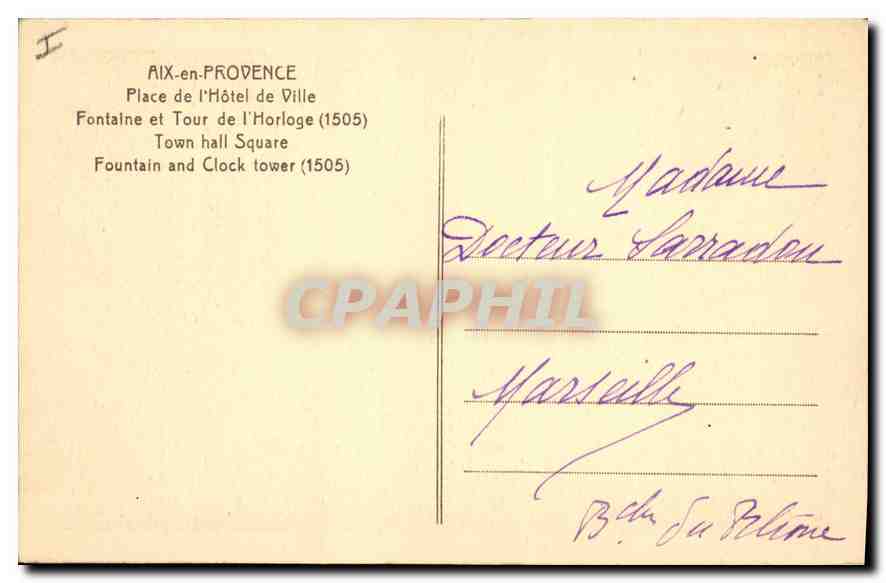 I
AIX-en-PROVENCE
Place de l'Hôtel de Ville
Fontaine et Tour de l'Horloge (1505)
Town hall Square
Fountain and Clock tower (1505)
Madame
Docteur Sarradon
CPAPHIL
Marseille
Bches du Rhône